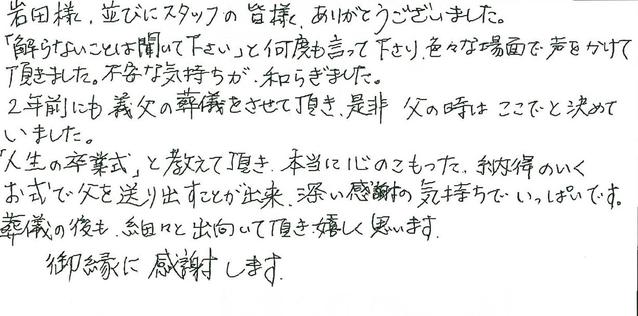 岩田様、並びにスタッフの皆様、ありがとうございました。
「解らないことは聞いて下さい」と何度も言って下さり、色々な場面で声をかけて
頂きました。不安な気持ちが、和らぎました。
2年前にも義父の葬儀をさせて頂き、是非 父の時はここでと決めて
いました。
「人生の卒業式」と教えて頂き、本当に心のこもった、納得のいく
お式で父を送り出すことが出来、深い感謝の気持ちでいっぱいです。
葬儀の後も、細々と出向いて頂き嬉しく思います。
御縁に感謝します。